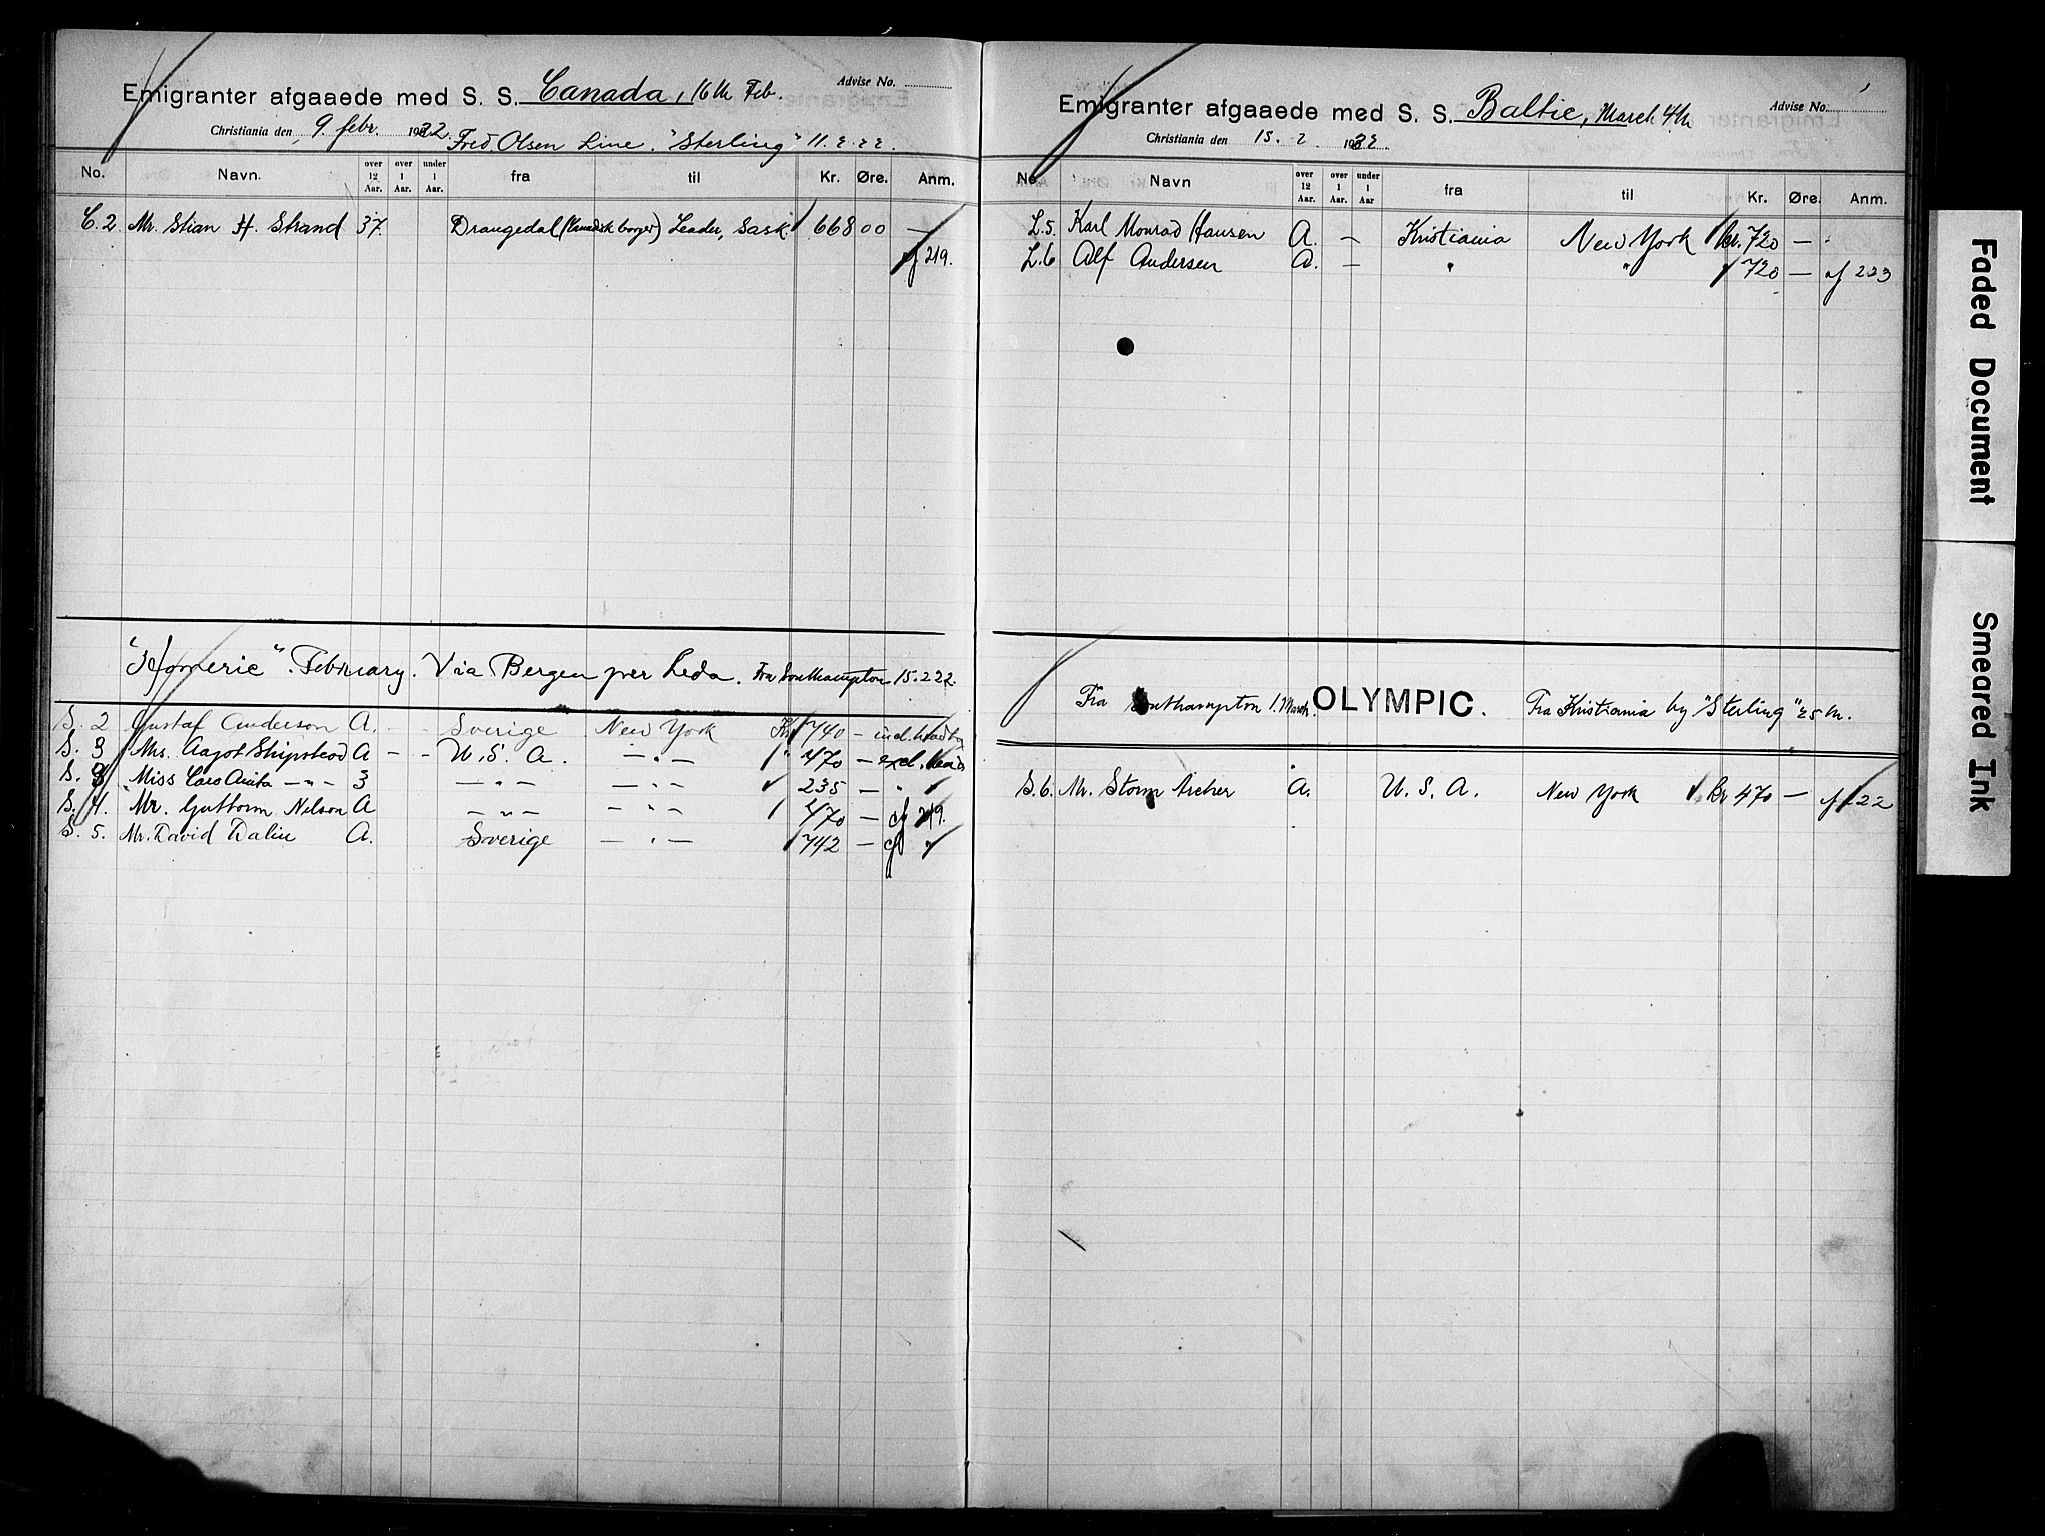 Emigranter afgaaede med S. S. Canada, 16th Feb. Advise No.
Christiania den 9. febr. 1922. Fred. Olsen Line. "Sterling" 11.2.22.
No. Navn. over 12 Aar. over 1 Aar. under 1 Aar. fra til Kr. Øre. Anm.
C. 2 Mr. Stian H. Strand 37 Drangedal (Canadisk borger) Leader, Sask 668 00 —
cf 219.
"Homeric". February. Via Bergen per Leda. Fra Southampton 15.2.22.
S. 2 Gustaf Anderson A. - - Sverige New York Kr 740 —
S. 3 Mrs. Aagot Shipstead A - - U. S. A. — " — " 470 — excl.
S. 3 Miss Caro Anita — " — 3 — " — — " — 235 — "
S. 4. Mr. Guttorm Nelson A — " — — " — 470 — cf 219.
S. 5. Mr. David Dalin A. Sverige — " — 742 — cf "
Emigranter afgaaede med S. S. Baltic, March 4th Advise No.
Christiania den 15. 2 1922
No. Navn over 12 Aar. over 1 Aar. under 1 Aar fra til Kr. Øre. Anm.
L. 5. Karl Monrad Hansen A. — Kristiania New York kr. 720 — "
L. 6 Alf Andersen A. — " " 720 — cf 223
Fra Southampton 1. March. OLYMPIC. Fra Kristiania by "Sterling" 25th.
S. 6. Mr. Storm Archer A. U. S. A. New York kr 470 — cf 222
Faded Document
Smeared Ink